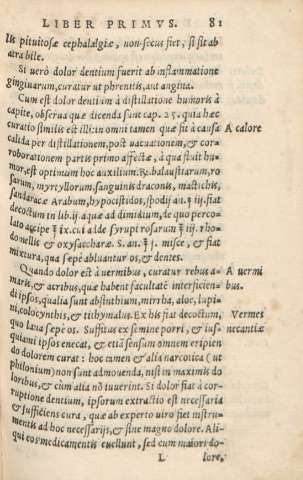 LIBER PRIMVS. 81
tis pituitosæ cephalalgiæ, non secus fiet, si sit ab
atra bile.
Si uerò dolor dentium fuerit ab inflammatione
gingiuarum, curatur ut phrenitis, aut angina.
Cum est dolor dentium à distillatione humoris à
capite, obserua quæ dicenda sunt cap. 25. quia hæc
curatio similis est illi: in omni tamen quæ fit à causa
A calore
calida per distillationem, post uacuationem, & cor-
roborationem partis primo affectæ, à qua fluit hu-
mor, est optimum hoc auxilium. ℞. balaustiarum, ro
sarum, myrtyllorum, sanguinis draconis, mastichis,
sandaracæ Arabum, hypocistidos, spodij an. ʒ iij. fiat
decoctum in lib. ij. aquæ ad dimidium, de quo perco-
lato accipe ℥ ix. cui adde syrupi rosarum ℥ iij. rho-
domellis & oxysaccharæ. S. an. ℥ j. misce, & fiat
mixtura, qua sepè abluantur os, & dentes.
Quando dolor est à uermibus, curatur rebus a-
A uermi
maris, & acribus, quæ habent facultatē interficien-
bus.
di ipsos, qualia sunt absinthium, mirrha, aloe, lupi-
ni, colocynthis, & tithymalus. Ex his fiat decoctum,
Vermes
quo laua sepè os. Suffitus ex semine porri, & ius-
necantiæ
quiami ipsos enecat, & etiā sensum omnem eripien
do dolorem curat: hoc tamen & alia narcotica (ut
philonium) non sunt admouenda, nisi in maximis do
loribus, & cùm alia nō iuuerint. Si dolor fiat à cor-
ruptione dentium, ipsorum extractio est necessaria
& sufficiens cura, quæ ab experto uiro fiet instru-
mentis ad hoc necessarijs, & sine magno dolore. Ali-
qui eos medicamentis euellunt, sed cum maiori do-
L lore,